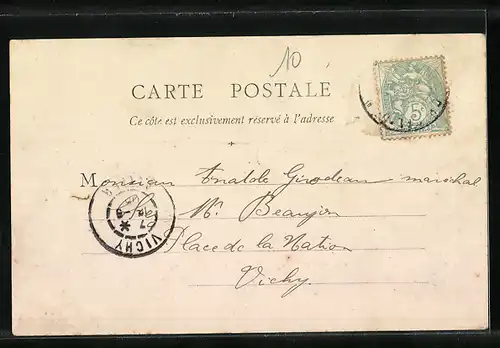 10
CARTE POSTALE
Ce côté est exclusivement réservé à l'adresse
5c
Monsieur Anatole Girodeau maréchal
Mr. Beaujon
Place de la Nation
Vichy
VICHY